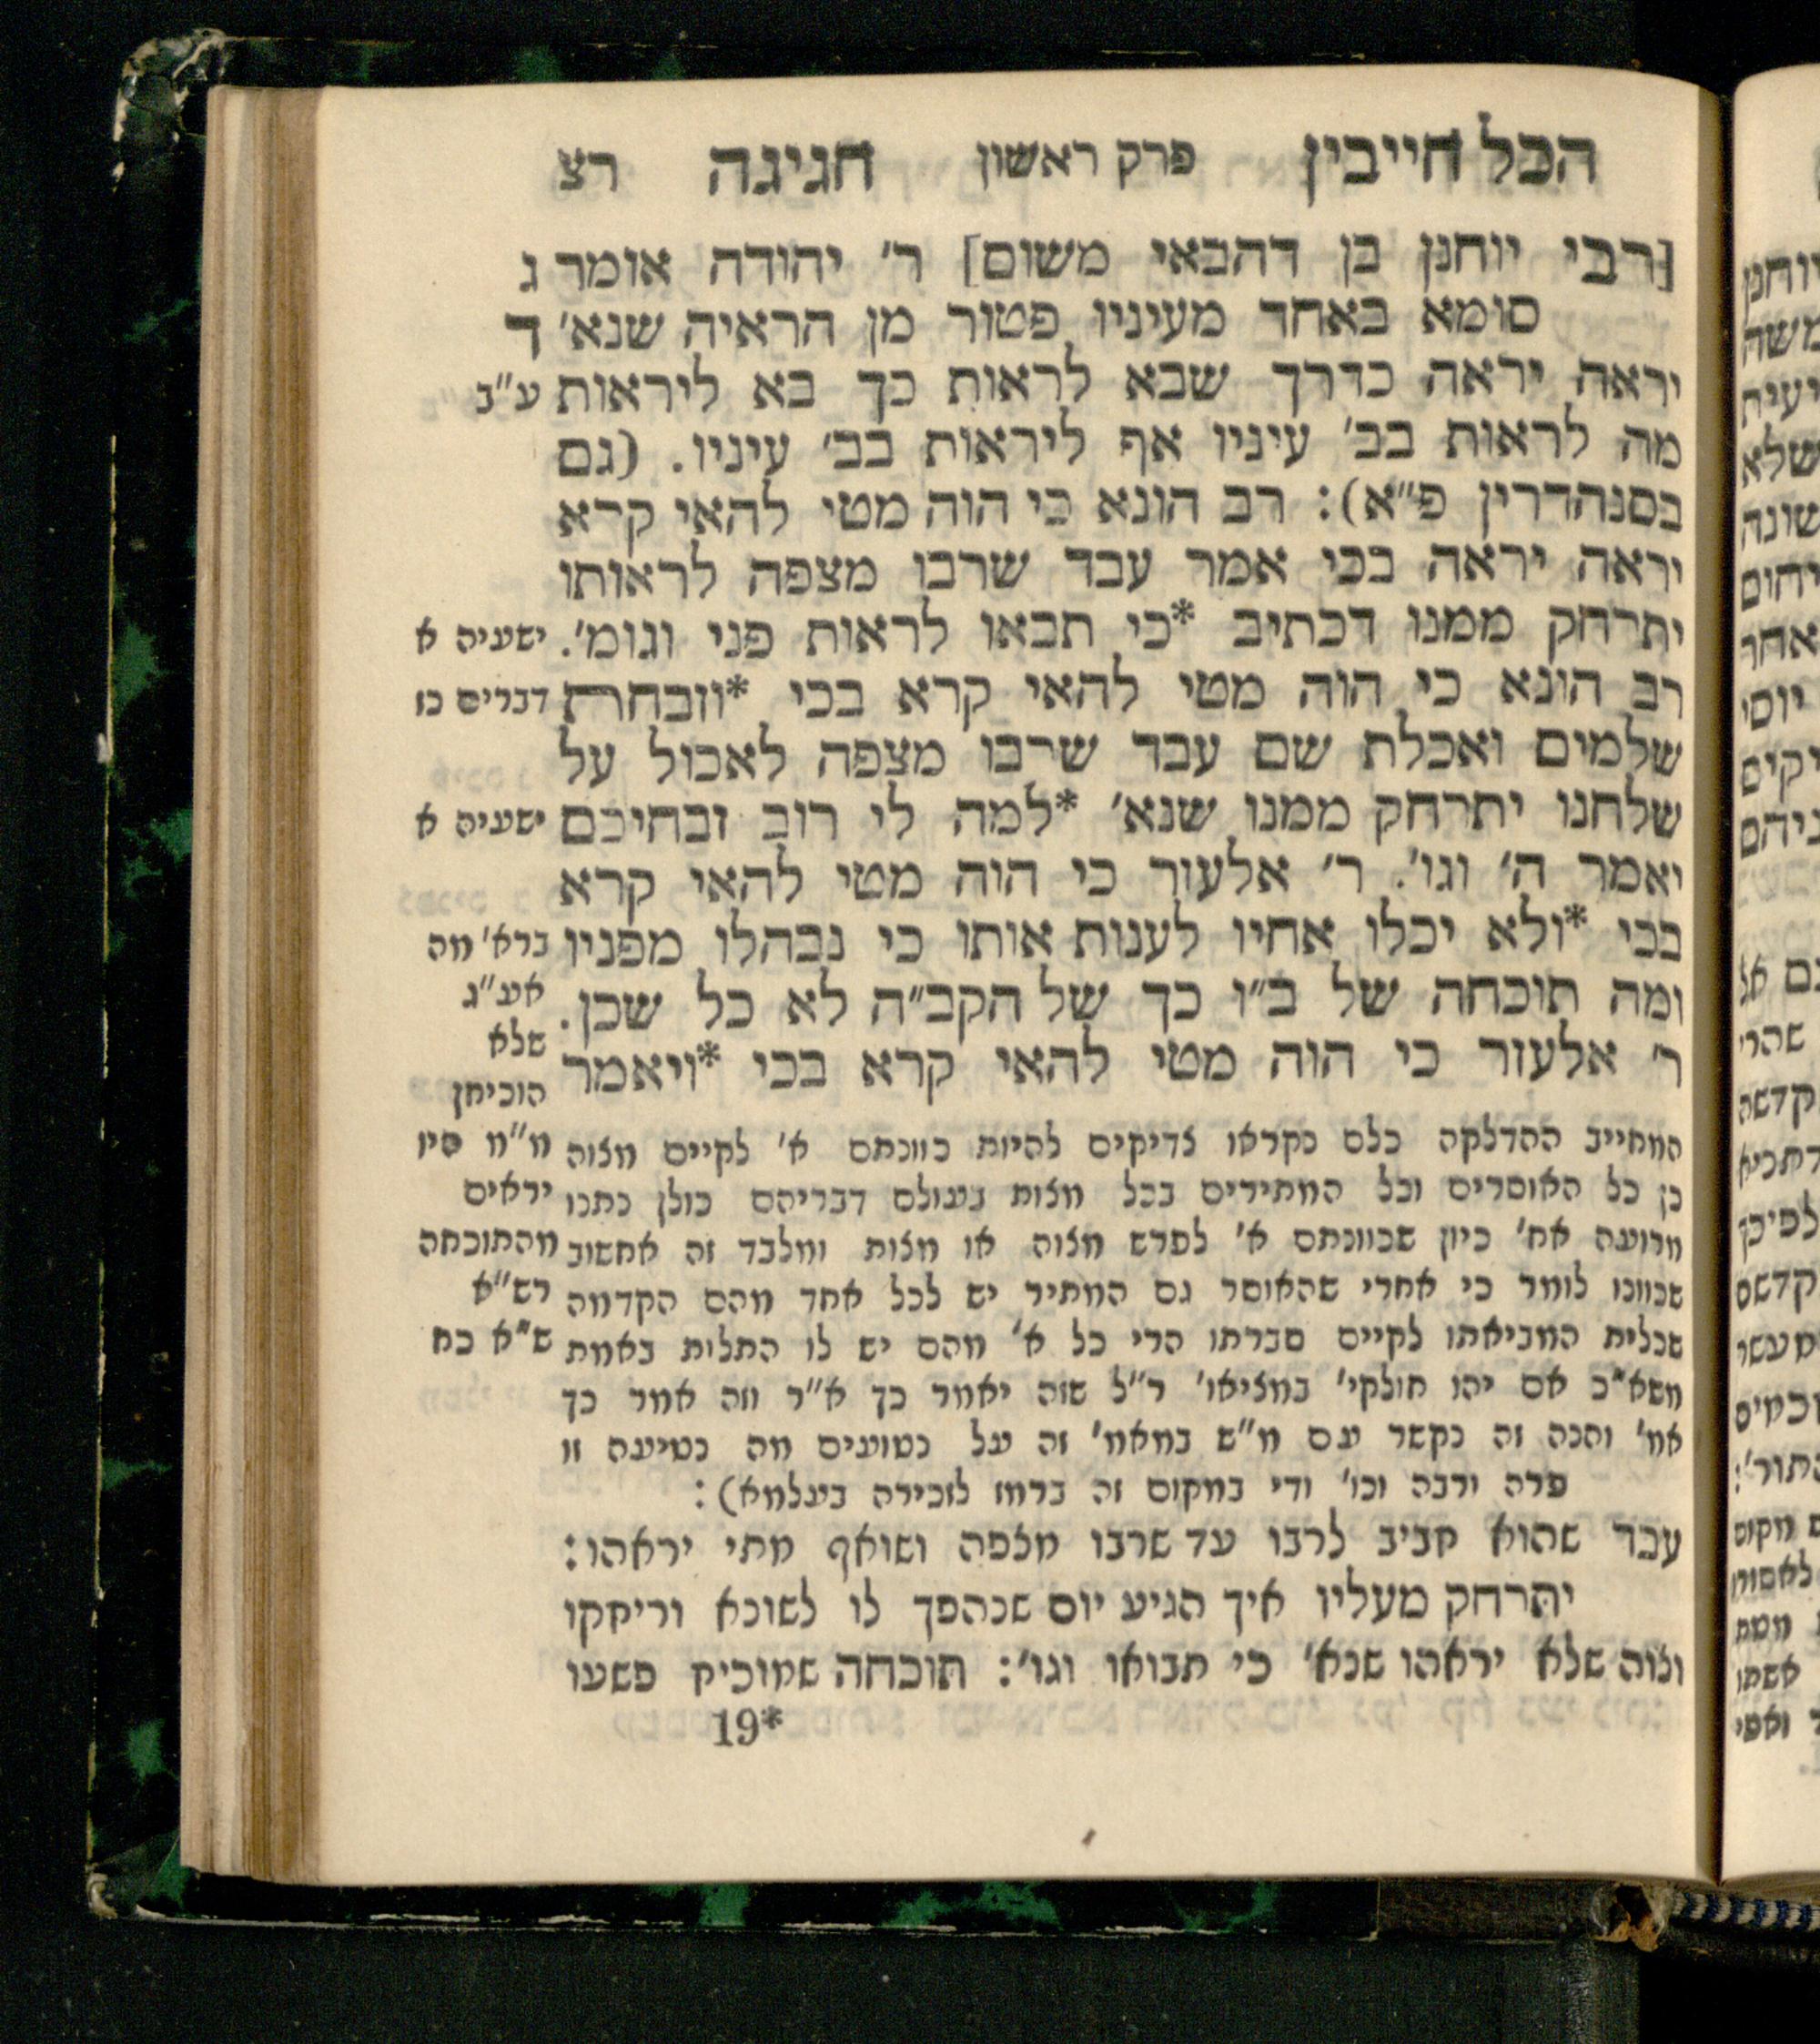 הכל חייבין פרק ראשון חגיגה רצ
[רבי יוחנן בן דהבאי משום] ר׳ יהודה אומר ג
סומא באחד מעיניו פטור מן הראיה שנא׳ ד
יראה יראה כדרך שבא לראות כך בא ליראות ע״ב
מה לראות בב׳ עיניו אף ליראות בב׳ עיניו. (גם
בסנהדרין פ״א): רב הונא כי הוה מטי להאי קרא
יראה יראה בכי אמר עבד שרבו מצפה לראותו
יתרחק ממנו דכתיב *כי תבאו לראות פני וגומ׳. ישעיה א
רב הונא כי הוה מטי להאי קרא בכי *וזבחת דברים כז
שלמים ואכלת שם עבד שרבו מצפה לאכול על
שלחנו יתרחק ממנו שנא׳ *למה לי רוב זבחיכם ישעיה א
יאמר ה׳ וגו׳. ר׳ אלעזר כי הוה מטי להאי קרא
בכי *ולא יכלו אחיו לענות אותו כי נבהלו מפניו ברא׳ מה
ומה תוכחה של ב״ו כך של הקב״ה לא כל שכן. אע״ג
שלא
ר׳ אלעזר כי הוה מטי להאי קרא בכי *ויאמר
הוכיחן
המחייב ההדלקה כלם נקראו צדיקים להיות כוונתם א׳ לקיים מצוה מ״מ היו
כן כל האוסרים וכל המתירים בכל מצות בעולם דבריהם כולן נתנו יראים
מרועה אח׳ כיון שכוונתם א׳ לפרש מצוה או מצות ומלבד זה אחשוב מהתוכחה
שכוונו לומר כי אחרי שהאוסר גם המתיר יש לכל אחד מהם הקדמה רש״א
שכלית המביאתו לקיים סברתו הרי כל א׳ מהם יש לו התלות באמת ש״א כח
משא״כ אם יהו חולקי׳ במציאו׳ ר״ל שזה יאמר כך א״ר וזה אמר כך
אמ׳ והנה זה נקשר עם מ״ש במאמ׳ זה על נטועים מה נטיעה זו
פרה ורבה וכו׳ ודי במקום זה ברמז לזכירה בעלמא):
עבד שהוא חביב לרבו עד שרבו מצפה ושואף מתי יראהו:
יתרחק מעליו איך הגיע יום שנהפך לו לשונא וריחקו
וצוה שלא יראהו שנא׳ כי תבואו וגו׳: תוכחה שמוכיח פשעו
19*
יוחנן
משה
שלא
שונה
אחר
יוסי
שהרי
קדשה
לפיכך